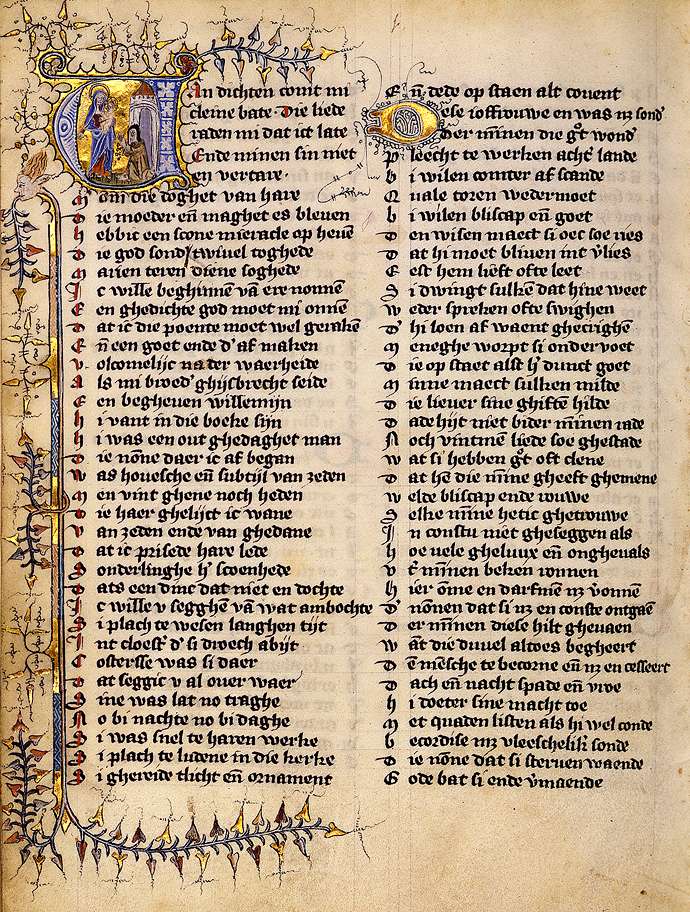 Van dichten comt mi
cleine bate · Die liede
raden mi dat ict late
Ende minen sin niet
en vertare ·
Om die doghet van hare
Die moeder eñ maghet es bleuen
Hebbic een scone mieracle op heuē
Die god sonder twiuel toghede
Marien teren diene soghede
Ic wille beghinnē vā ere nonnē
Een ghedichte god moet mi onnē
Dat ic die poente moet wel gerakē
Eñ een goet ende d' af maken
Volcomelijc na der waerheide
Als mi broed' ghijsbrecht seide
Een begheuen willemijn
Hi vant in die boeke sijn
Hi was een out ghedaghet man
Die nōne daer ic af began
Was houesche eñ subtijl van zeden
Men vint ghene noch heden
Die haer ghelijct ic wane
Van zeden ende van ghedane
Dat ic prisede hare lede
Sonderlinghe h' scoenhede
Dats een dinc dat niet en dochte
Ic wille v segghē vā wat ambochte
Si plach te wesen langhen tijt
Int cloest' d' si droech abijt
Costersse was si daer
Dat seggic v al ouer waer
Sine was lat no traghe
No bi nachte no bi daghe
Si was snel te haren werke
Si plach te ludene in die kerke
Si ghereide tlicht eñ ornament
Eñ dede op staen alt couent
Dese ioffrouwe en was nz sond'
Der minen die g°t wond'
Pleecht te werken acht' lande
Bi wilen comter af scande
Quale toren wedermoet
Bi wilen bliscap eñ goet
Den wisen maect si oec soe ries
Dat hi moet bliuen int v'lies
Eest hem lieft ofte leet
Si dwingt sulken dat hine weet
Weder spreken ofte swighen
D' hi loen af waent ghecrighē
Meneghe worpt si onder voet
Die op staet alst h' dunct goet
Minne maect sulken milde
Die liever sine ghiftē hilde
Dade hijt niet bider mīnen rade
Noch vintmē liede soe ghestade
Wat si hebben g°t oft clene
Dat hē die mīne gheeft ghemene
Welde bliscap ende rouwe
Selke mīne hetic ghetrouwe
In constu niet gheseggen als
Hoe vele gheluux eñ onghevals
Vt mīnen beken ronnen
Hier ōme en darfmē nz v'onnē
D' nōnen dat si nz en conste ontgaē
Der mīnen diese hilt gheuaen
Wāt die duvel altoes begheert
Dē mēsche te becorne eñ nz en cesseert
Dach eñ nacht spade eñ vroe
Hi doeter sine macht toe
Met quaden listen als hi wel conde
Becordise mz vleeschelik' sonde
Die nōne dat si steruen waende
Gode bat si ende v'maende